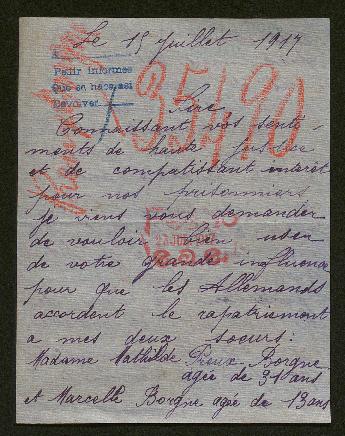 Le 15 Juillet 1917
A
Pedir informes
Que se haga así
Devolver
35490
Sire
Connaissant vos senti-
ments de haute justice
et de compatissant intérêt
pour nos prisonniers
je viens vous demander
de vouloir bien user
de votre grande influence
pour que les Allemands
accordent le rapatriement
a mes deux soeurs:
Madame Mathilde Preux-Borgne
agée de 31 ans
et Marcelle Borgne agée de 13 ans